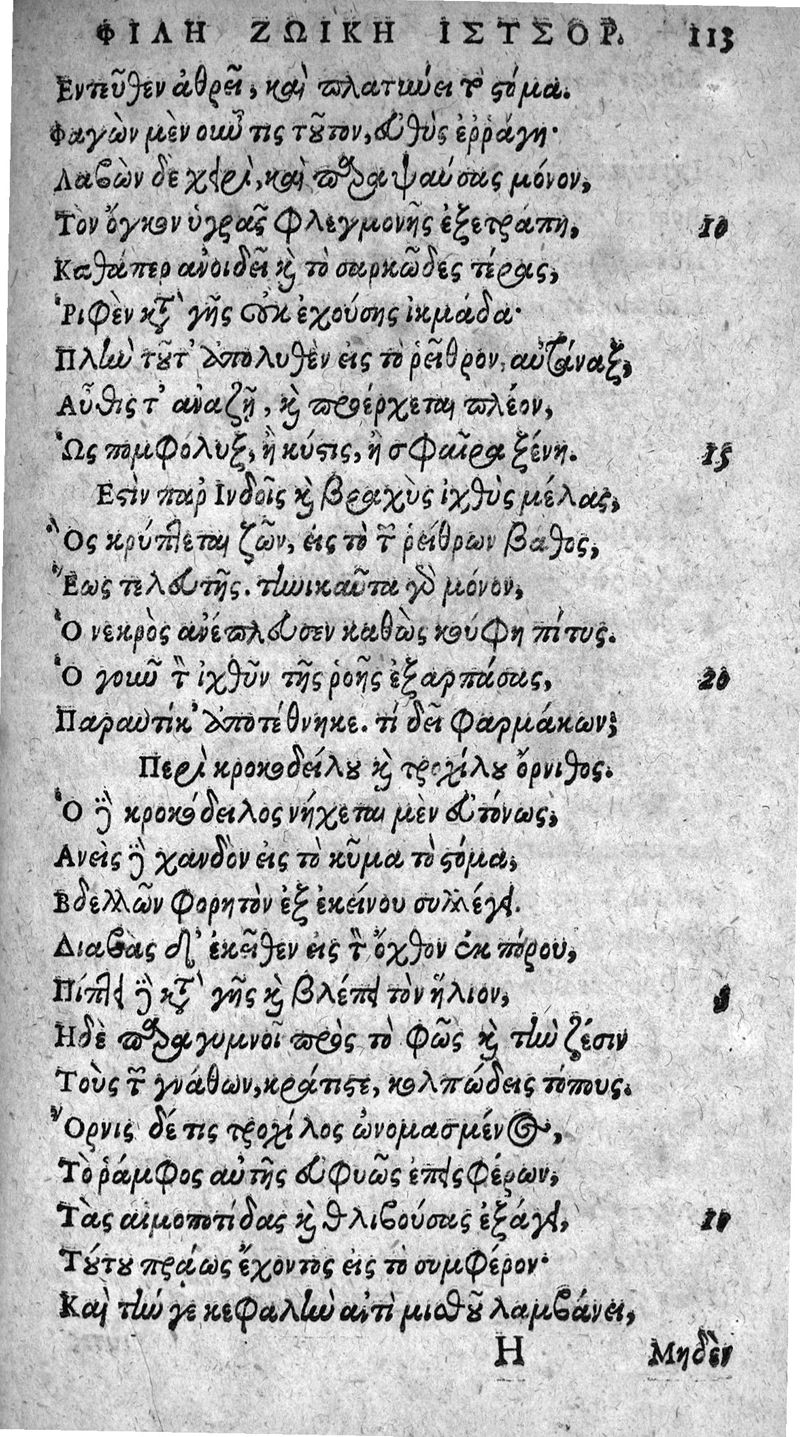 ΦΙΛΗ ΖΩΙΚΗ ΙΣΤΣΟΡ. 113
Ἐντεῦθεν ἀθρεῖ, καὶ πλατύνει τὸ στόμα.
Φαγὼν μὲν οὖν τις τοῦτον, εὐθὺς ἐῤῥάγη·
Λαβὼν δὲ χειρὶ, καὶ παραψαύσας μόνον,
Τὸν ὄγκον ὑγρᾶς φλεγμονῆς ἐξετράπη, 10
Καθάπερ ἀνοιδεῖ καὶ τὸ σαρκῶδες τέρας,
Ῥιφὲν κατὰ γῆς οὐκ ἐχούσης ἰκμάδα·
Πλὴν τοῦτ' ἀπολυθὲν εἰς τὸ ῥεῖθρον, αὐτάναξ,
Αὖθίς τ' ἀναζῇ, καὶ προέρχεται πλέον,
Ὡς πομφόλυξ, ἢ κύστις, ἢ σφαῖρα ξένη. 15
Ἐστὶν παρ Ἰνδοῖς καὶ βραχὺς ἰχθὺς μέλας,
Ὃς κρύπτεται ζῶν, εἰς τὸ τῶν ῥείθρων βάθος,
Ἕως τελευτῆς. τηνικαῦτα γὰρ μόνον,
Ὁ νεκρὸς ἀνέπλευσεν καθὼς κούφη πίτυς.
Ὁ γοῦν τὸν ἰχθῦν τῆς ῥοῆς ἐξαρπάσας, 20
Παραυτίκ' ἀποτέθνηκε. τί δεῖ φαρμάκων;
Περὶ κροκοδείλου καὶ τροχίλου ὄρνιθος.
Ὁ δὲ κροκόδειλος νήχεται μεν εὐτόνως,
Ἀνεὶς δὲ χανδὸν εἰς τὸ κῦμα τὸ στόμα,
Βδελλῶν φορητὸν ἐξ ἐκείνου συλλέγει.
Διαβὰς δ' ἐκεῖθεν εἰς τὸν ὄχθον ἐκ πόρου,
Πίπτει δὲ κατὰ γῆς καὶ βλέπει τὸν ἥλιον, 5
Ηδὲ παραγυμνοῖ πρὸς τὸ φῶς καὶ τὴν ζέσιν
Τοὺς τῶν γνάθων, κράτιστε, κολπώδεις τόπους.
Ὄρνις δέ τις τροχίλος ὠνομασμένος,
Τὸ ῥάμφος αὐτῆς εὐφυῶς ἐπεισφέρων,
Τὰς αἱμοποτίδας καὶ θλιβούσας ἐξάγει, 10
Τούτου πράως ἔχοντος εἰς τὸ συμφέρον·
Καὶ τήν γε κεφαλὴν ἀντὶ μισθοῦ λαμβάνει,
Η Μηδὲν